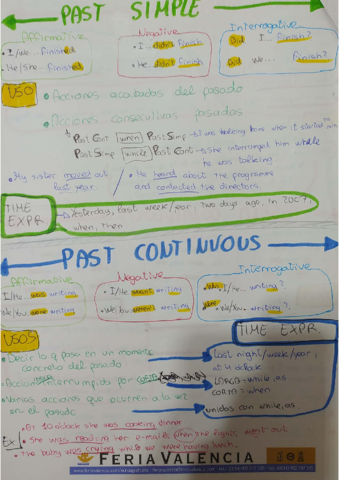 PAST SIMPLE
Affirmative
Negative
Interrogative
• I/we... Finished
• I... didn't finish
Did I... finish?
• He/She... Finished
• He... didn't finish
Did we... finish?
USO
• Acciones acabadas del pasado
• Acciones consecutivas pasadas
Past Cont when Past Simp → I was talking home when it started
Past Simp while Past Cont → She interrumped him while
he was talking
• My sister moved out
last year.
• He heard about the programme
and contacted the directors.
TIME
EXPR
→ Yesterday, last week/year, two days ago, in 2007,
when, then
PAST CONTINUOUS
Affirmative
Negative
Interrogative
• I/He was writing
• I/He wasn't writing
• Was I/He writing?
• We/You were writing
• We/You weren't writing
• We/You... writing?
USOS
TIME EXPR
• Decir lo q pasa en un momento
concreto del pasado
Last night/week/year,
at 4 o'clock
• Acción interrumpida por
LARGA = while, as
CORTA = when
• Varias acciones que ocurren a la vez
en el pasado
unidas con while, as
Ex
• At 10 o'clock she was cooking dinner
• She was reading her e-mails when the lights went out
• The baby was crying while we were having lunch.
FERIA VALENCIA